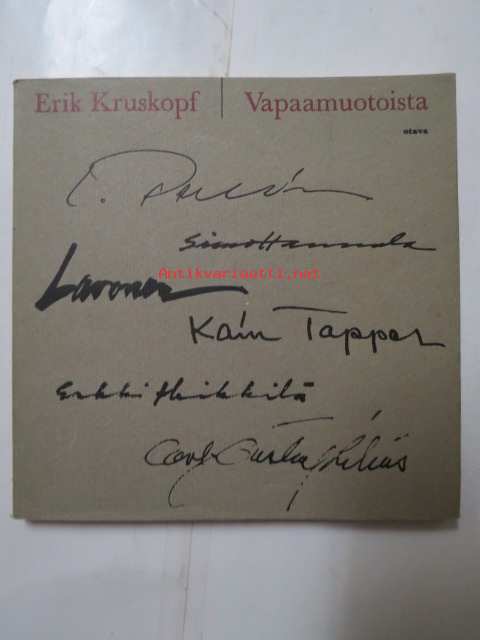 Erik Kruskopf | Vapaamuotoista
otava
Simo Hannula
Antikvariaatti.net
Lavonen
Kain Tapper
Erkki Heikkilä
Carl-Gustaf Lilius